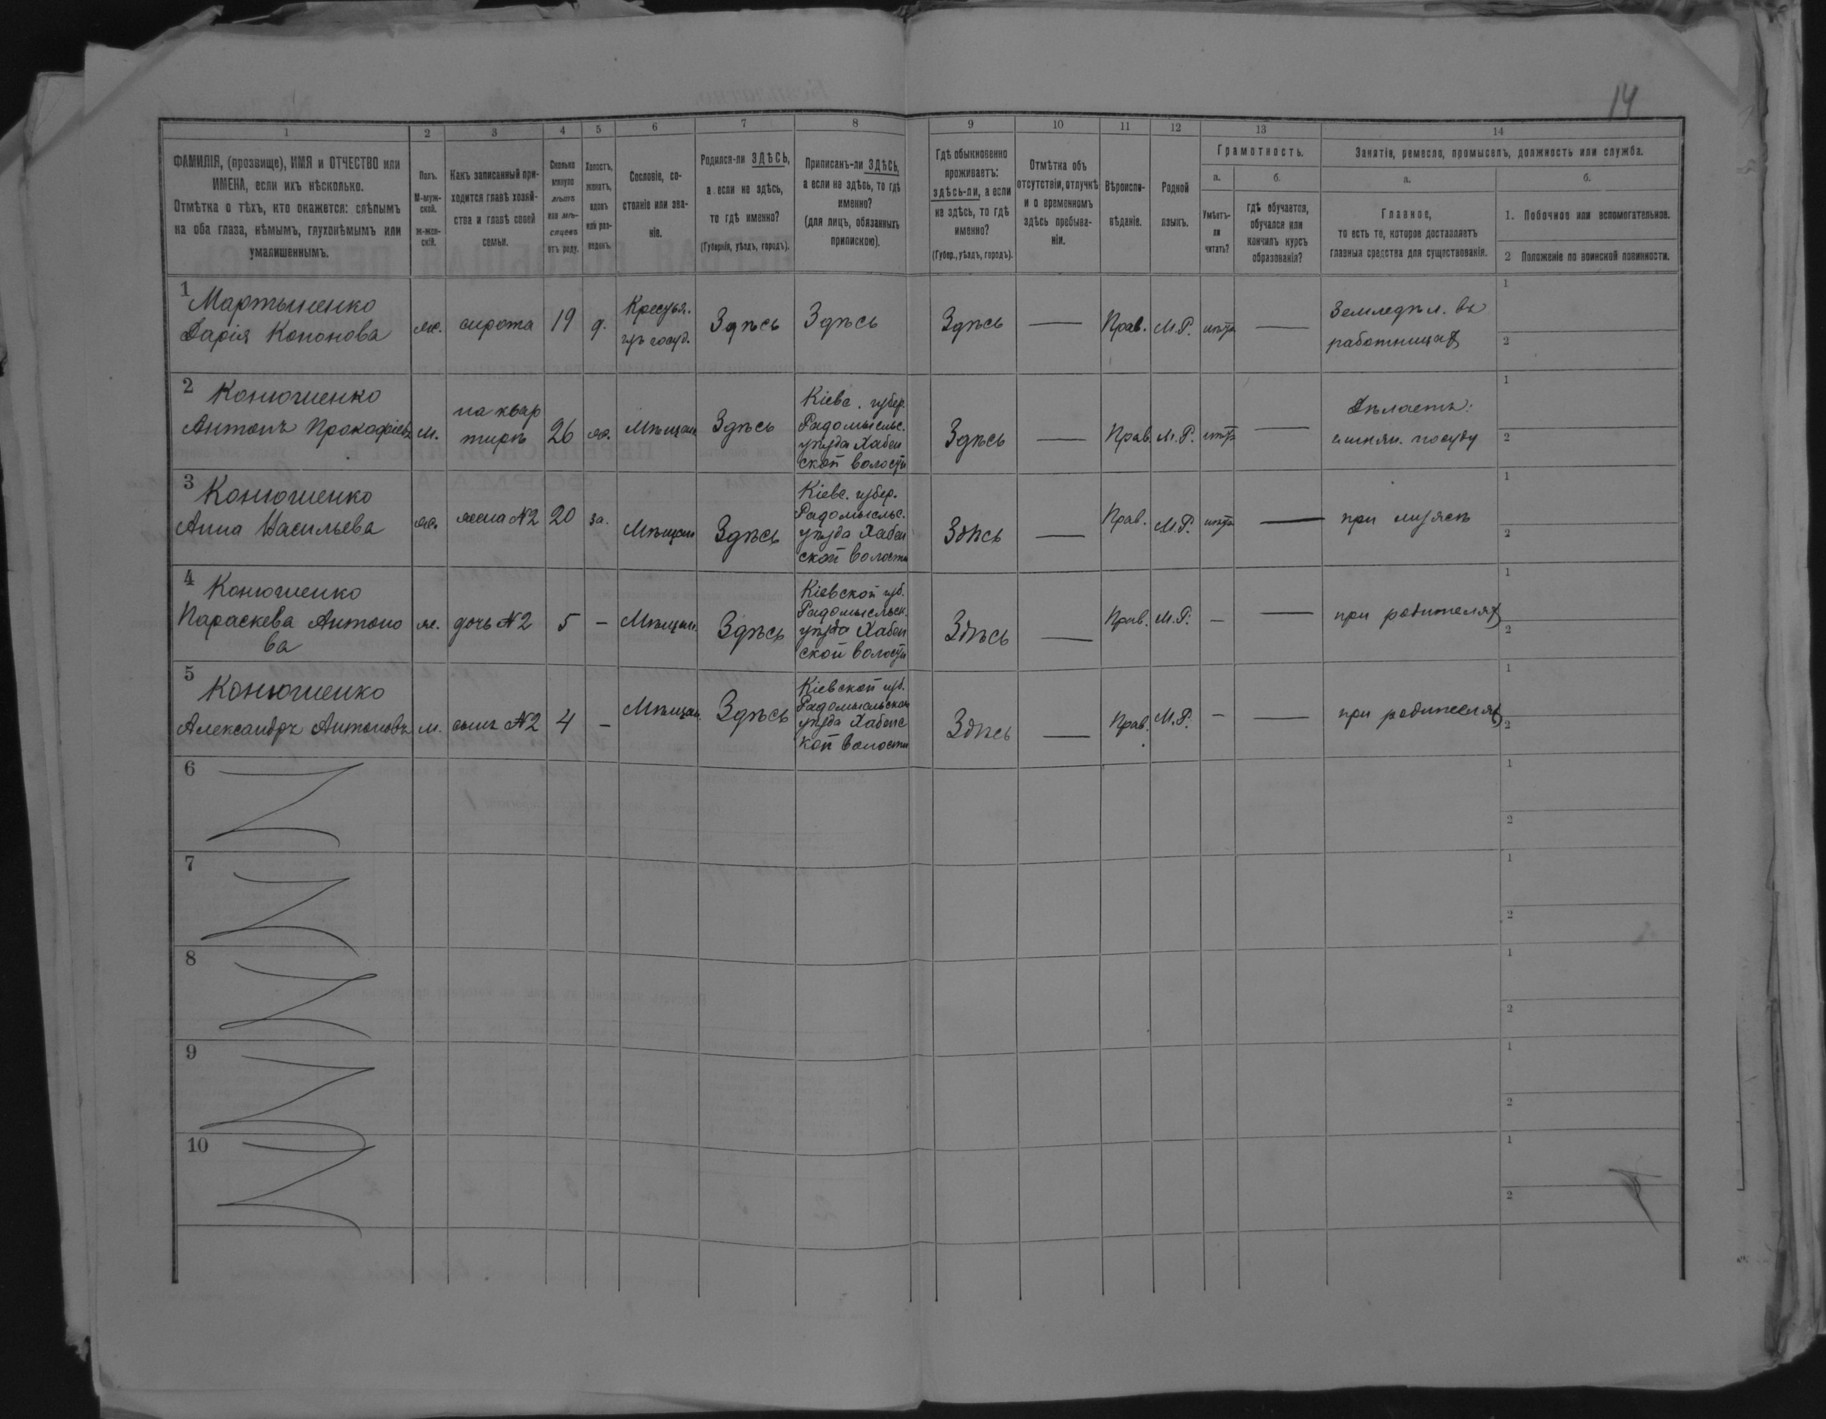 14
1 2 3 4 5 6 7 8 9 10 11 12 13 14
ФАМИЛІЯ, (прозвище), ИМЯ и ОТЧЕСТВО или
ИМЕНА, если ихъ нѣсколько.
Отмѣтка о тѣхъ, кто окажется: слѣпымъ
на оба глаза, нѣмымъ, глухонѣмымъ или
умалишеннымъ.
Полъ.
М-муж-
ской.
ж-жен-
скій.
Какъ записанный при-
ходится главѣ хозяй-
ства и главѣ своей
семьи.
Сколько
минуло
лѣтъ
или мѣ-
сяцевъ
отъ роду.
Холостъ,
женатъ,
вдовъ
или раз-
веденъ.
Сословіе, со-
стояніе или зва-
ніе.
Родился-ли ЗДѢСЬ,
а если не здѣсь,
то гдѣ именно?
(Губернія, уѣздъ, городъ).
Приписанъ-ли ЗДѢСЬ,
а если не здѣсь, то гдѣ
именно?
(для лицъ, обязанныхъ
припискою).
Гдѣ обыкновенно
проживаетъ:
здѣсь-ли, а если
не здѣсь, то гдѣ
именно?
(Губер., уѣздъ, городъ).
Отмѣтка объ
отсутствіи, отлучкѣ
и о временномъ
здѣсь пребыва-
ніи.
Вѣроиспо-
вѣданіе.
Родной
языкъ.
Грамотность.
а.
Умѣетъ-
ли
читать?
б.
Гдѣ обучается,
обучался или
кончилъ курсъ
образованія?
Занятіе, ремесло, промыселъ, должность или служба.
а.
Главное,
то есть то, которое доставляетъ
главныя средства для существованія.
б.
1. Побочное или вспомогательное.
2 Положеніе по воинской повинности.
1 Мартыненко
Дарія Кононова
ж. сирота 19 д.
Крестья.
гъ госуд.
Здѣсь Здѣсь Здѣсь — Прав. М.Р. нѣтъ —
Земледѣл. въ
работницахъ
1
2
2 Конюшенко
Антонъ Прокофіевъ
м.
на квар
тирѣ
26 ж. Мѣщан. Здѣсь
Кіевс. губер.
Радомысльс.
уѣзда Хабен
ской волости
Здѣсь — Прав. М.Р. нѣтъ —
Дѣлаетъ
глинян. посуду
1
2
3 Конюшенко
Анна Васильева
ж. жена №2 20 за. Мѣщан. Здѣсь
Кіевс. губер.
Радомысльс.
уѣзда Хабен
ской волости
Здѣсь — Прав. М.Р. нѣтъ — при мужѣ
1
2
4 Конюшенко
Параскева Антоно
ва
ж. дочь №2 5 — Мѣщан. Здѣсь
Кіевской губ.
Радомысльск.
уѣзда Хабен
ской волости
Здѣсь — Прав. М.Р. — — при родителяхъ
1
2
5 Конюшенко
Александръ Антоновъ
м. сынъ №2 4 — Мѣщан. Здѣсь
Кіевской губ.
Радомысльскаго
уѣзда Хабенс
кой волости
Здѣсь — Прав. М.Р. — — при родителяхъ
1
2
6
1
2
7
1
2
8
1
2
9
1
2
10
1
2